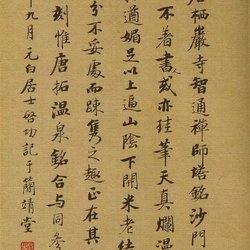 栖巖寺智通禪師塔銘沙門
不著書人或亦珪筆天真爛漫
遒媚足以上追山陰下開米老結
分不妥處而疎雋之趣正在其
刻惟唐拓温泉銘合與同參
九月元白居士啓功記于簡靖堂